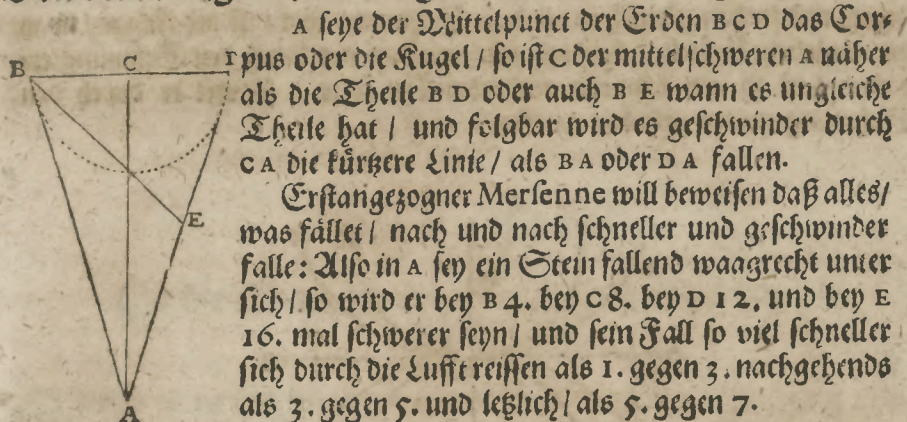 A seye der Mittelpunct der Erden B C D das Cor-
B C D pus oder die Kugel / so ist C der mittelschweren A näher
als die Theile B D oder auch B E wann es ungleiche
Theile hat / und folgbar wird es geschwinder durch
C A die kürtzere Linie / als B A oder D A fallen.
Erstangezogner Mersenne will beweisen daß alles /
was fället / nach und nach schneller und geschwinder
E
falle: Also in A sey ein Stein fallend waagrecht unter
sich / so wird er bey B 4. bey C 8. bey D 12. und bey E
16. mal schwerer seyn / und sein Fall so viel schneller
sich durch die Lufft reissen als 1. gegen 3. nachgehends
A als 3. gegen 5. und letzlich / als 5. gegen 7.